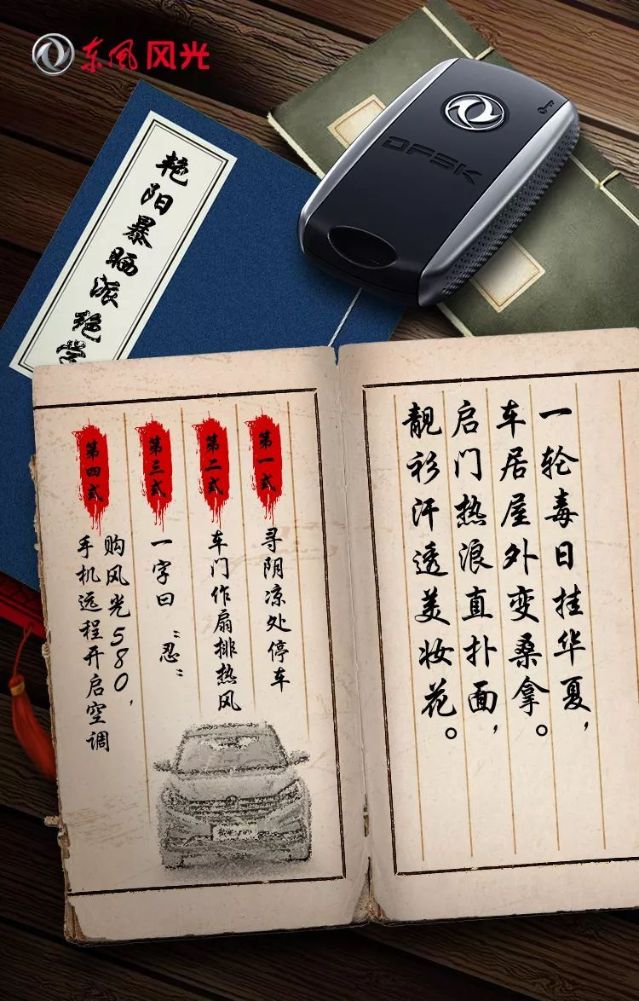 东风风光
DFSK
艳阳暴晒派绝学
一轮毒日挂华夏，
车居屋外变桑拿。
启门热浪直扑面，
靓衫汗透美妆花。
第一式
寻阴凉处停车
第二式
车门作扇排热风
第三式
一字曰“忍”
第四式
购风光580，
手机远程开启空调